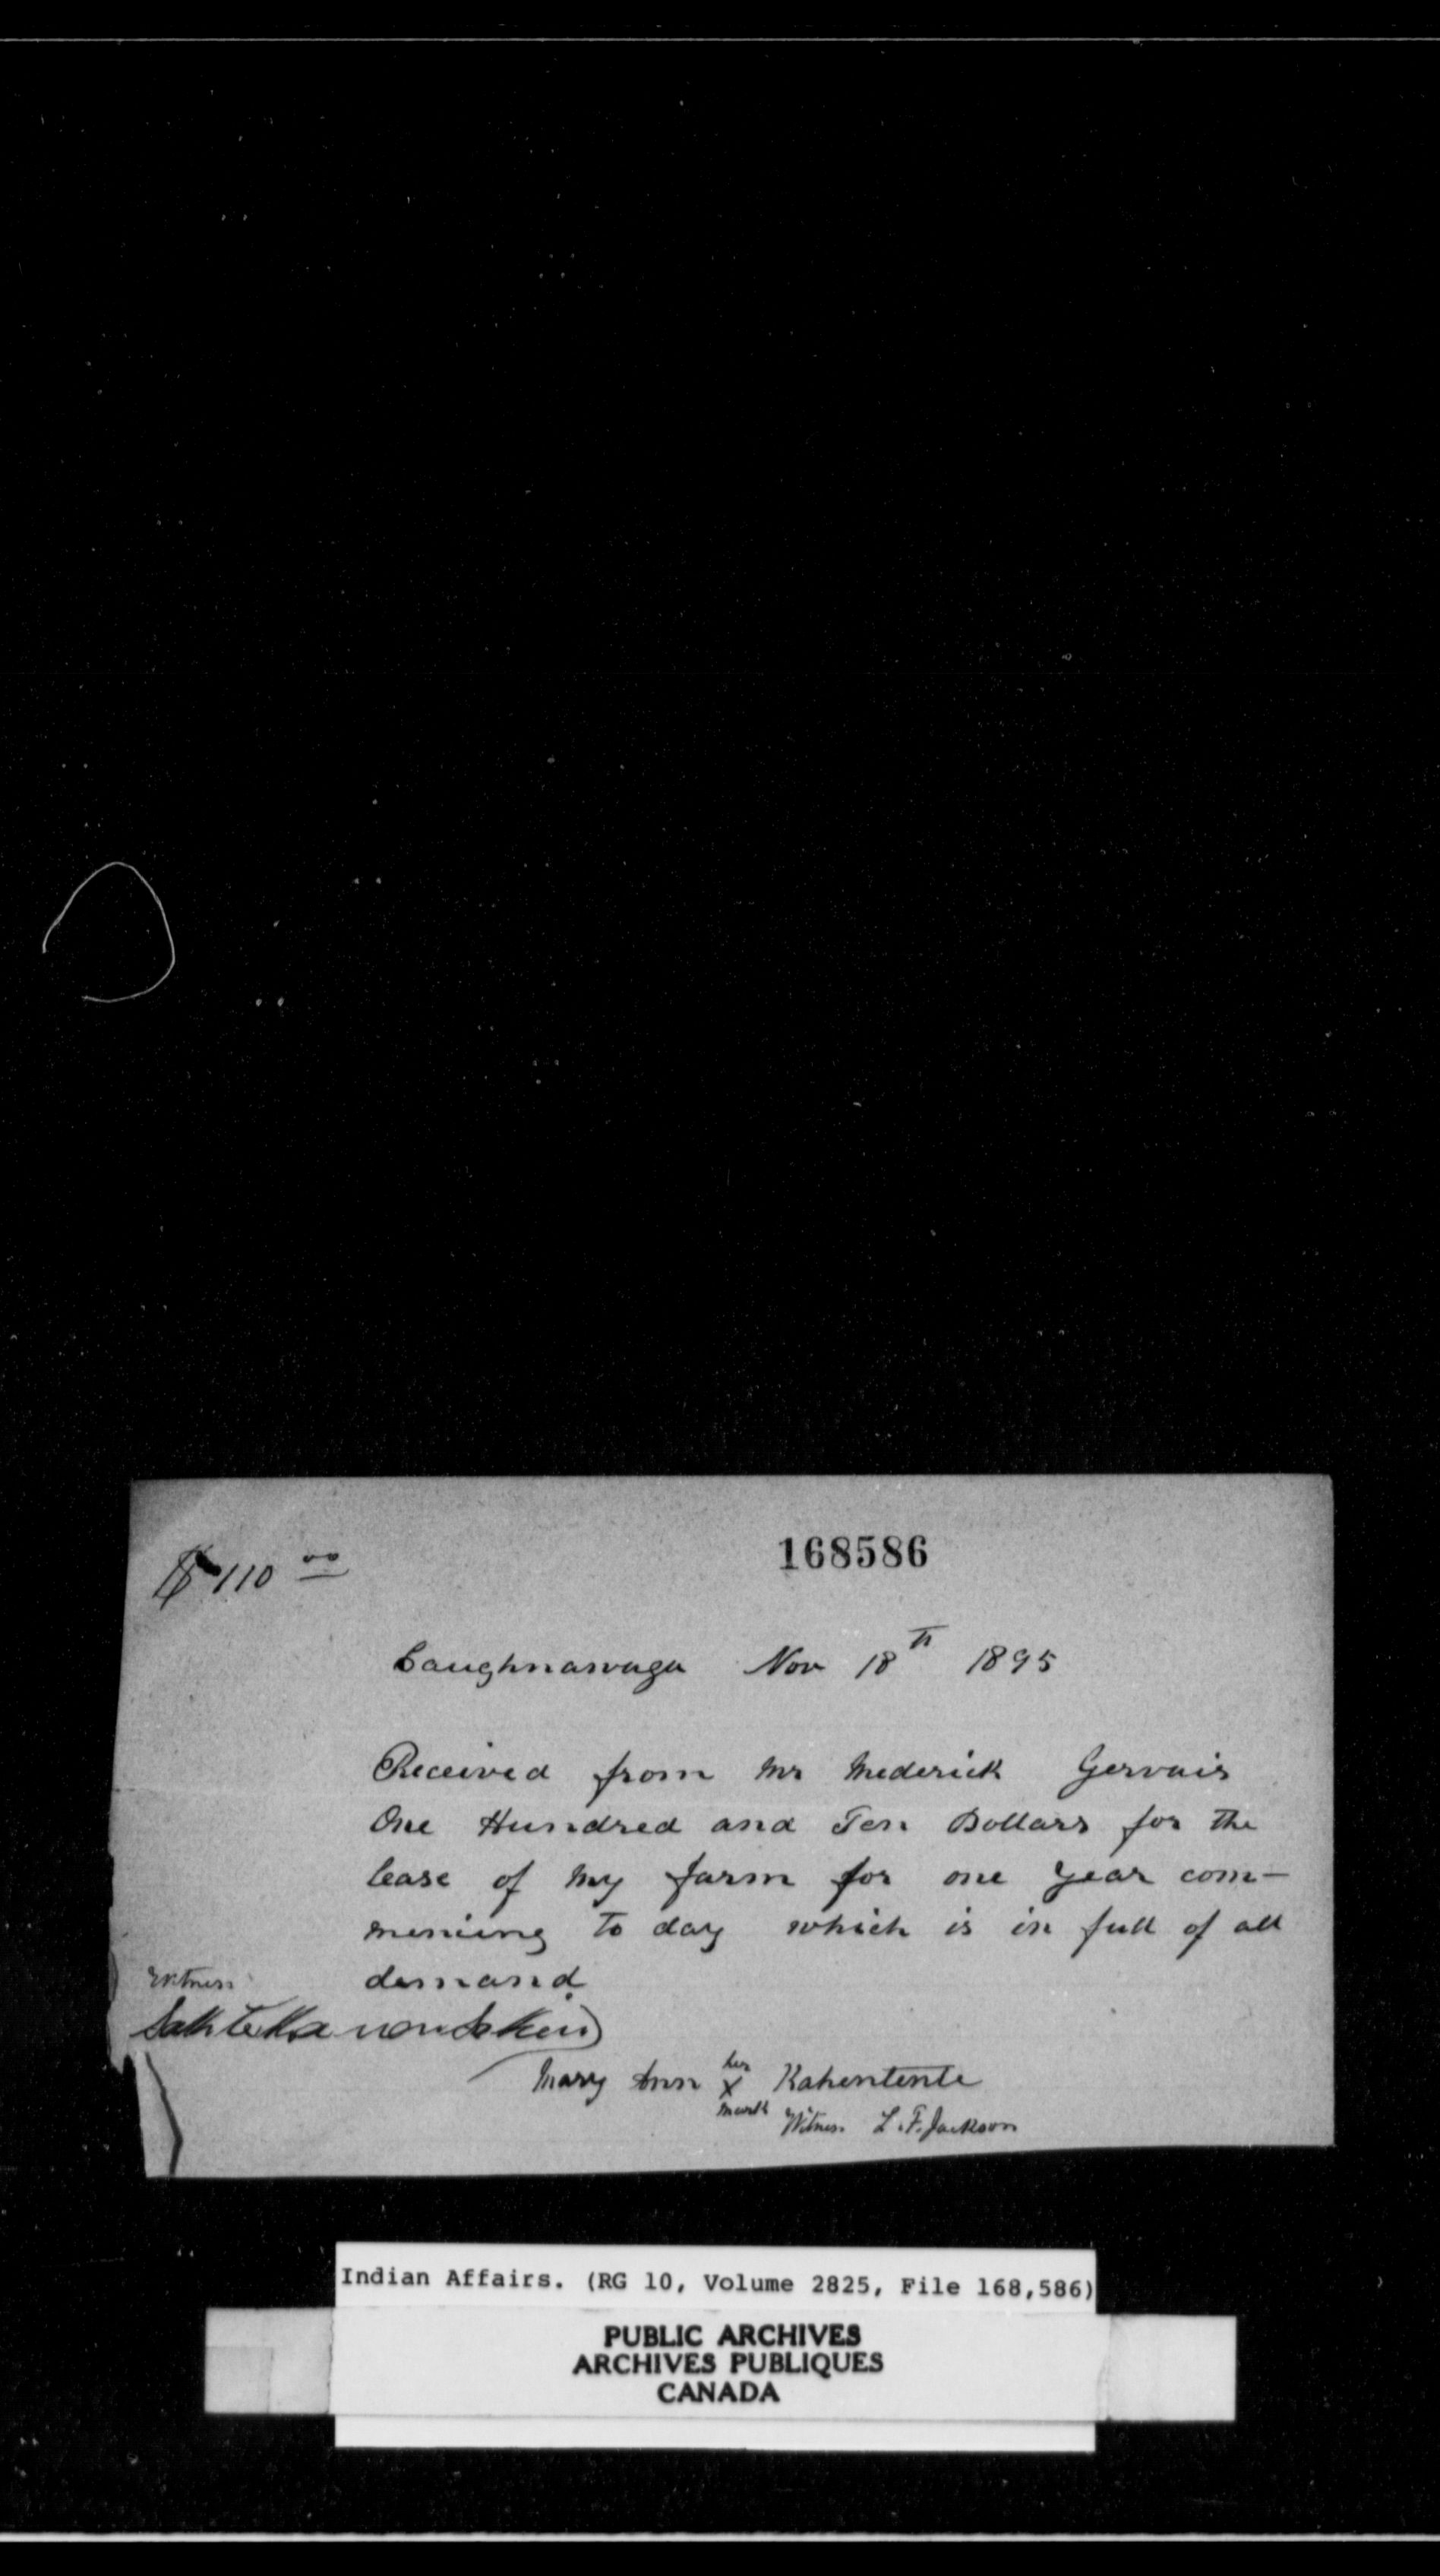 168586
$110 00
Caughnawaga Nov 18th 1895
Received from Mr Mederick Gervais
One Hundred and Ten Dollars for the
lease of my farm for one year com-
mencing to day which is in full of all
demand.
Witness
Mary Ann her X mark Kahentente
Witness L. F. Jackson
Indian Affairs. (RG 10, Volume 2825, File 168,586)
PUBLIC ARCHIVES
ARCHIVES PUBLIQUES
CANADA